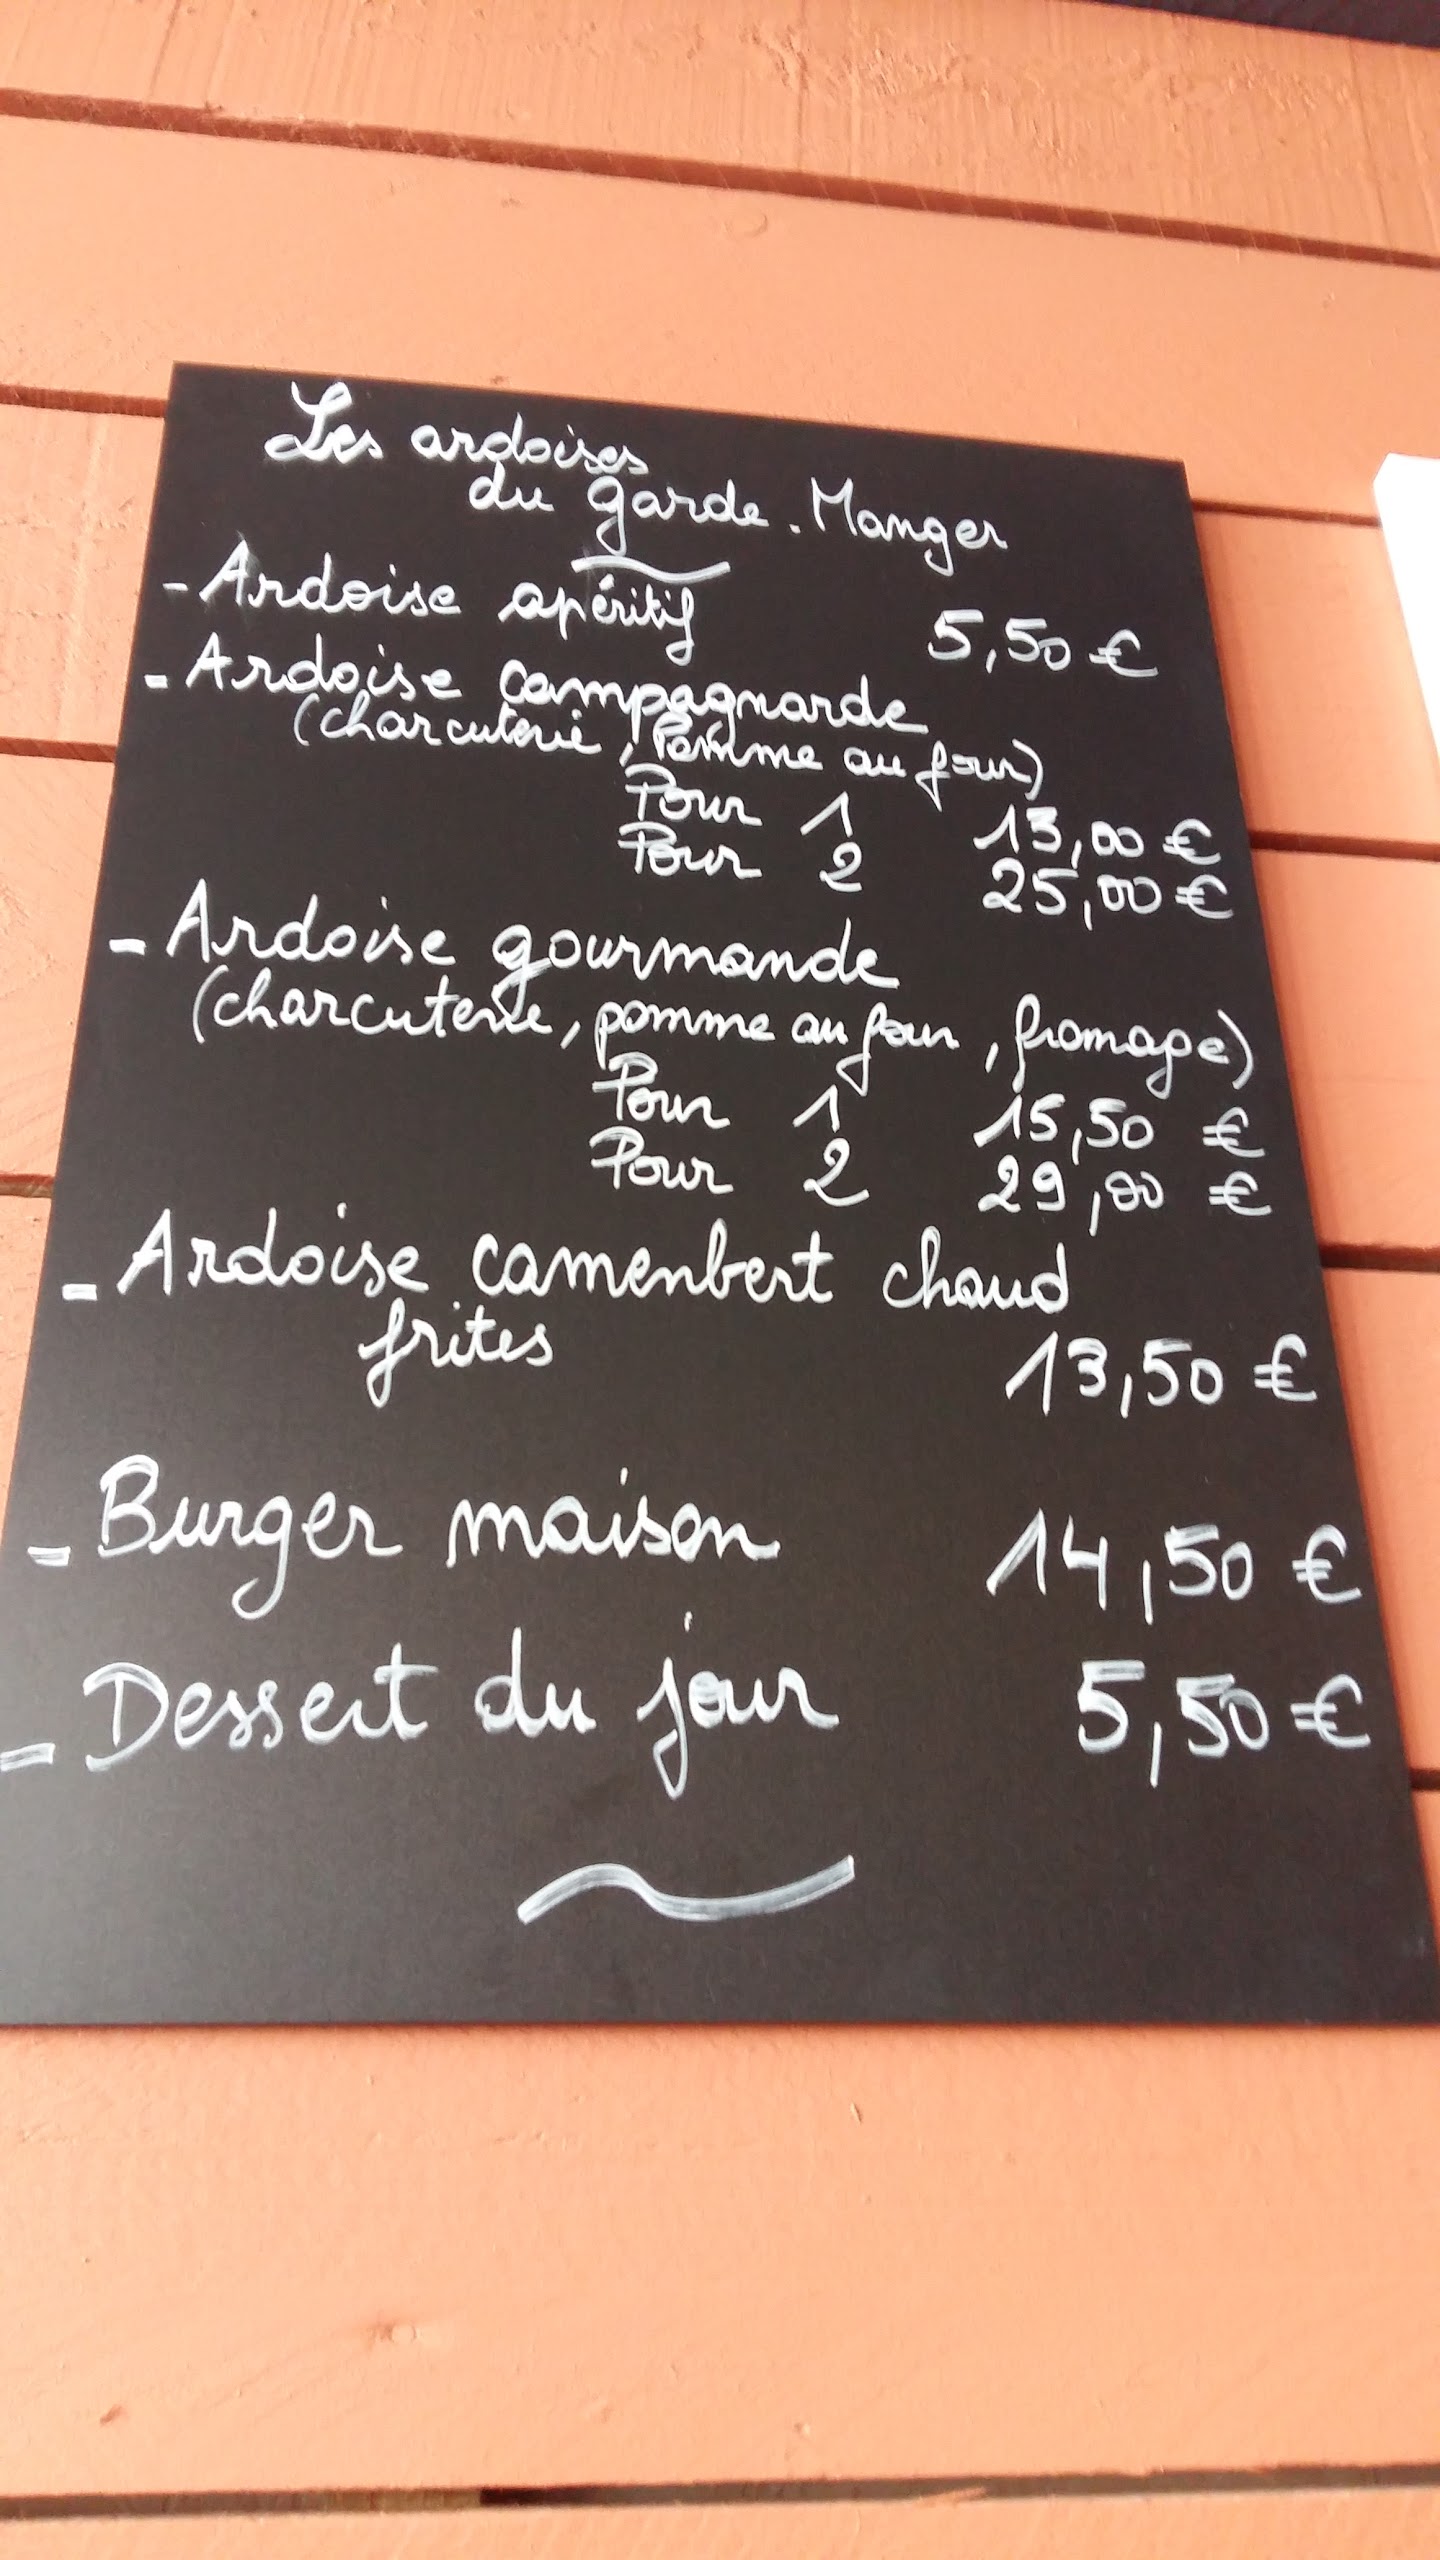 Les ardoises
du garde.Manger
- Ardoise apéritif 5,50 €
- Ardoise campagnarde
(charcuterie, Pomme au four)
Pour 1 13,00 €
Pour 2 25,00 €
- Ardoise gourmande
(charcuterie, pomme au four, fromage)
Pour 1 15,50 €
Pour 2 29,00 €
- Ardoise camenbert chaud
frites 13,50 €
- Burger maison 14,50 €
- Dessert du jour 5,50 €